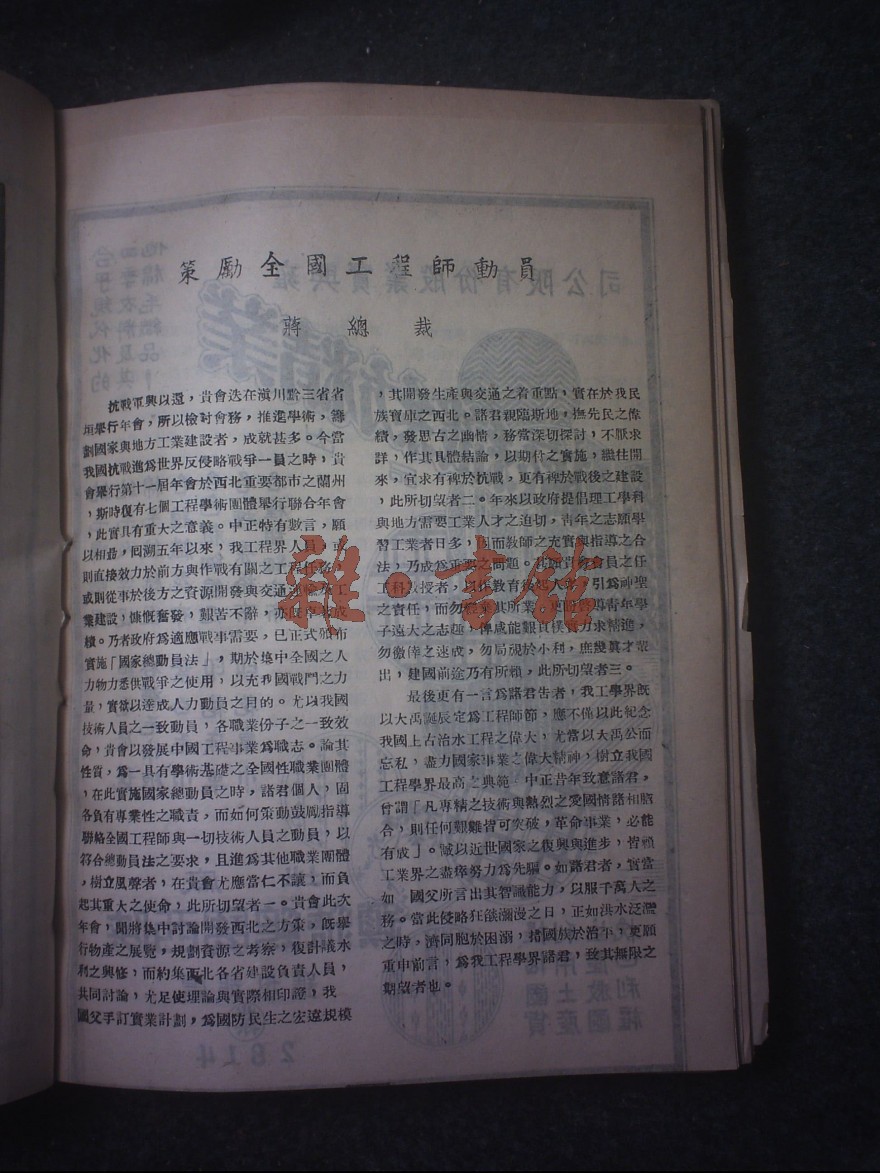 策勵全國工程師動員
蔣總裁
抗戰軍興以還,貴會迭在滇川黔三省省
垣舉行年會,所以檢討會務,推進學術,籌
劃國家與地方工業建設者,成就甚多。今當
我國抗戰進爲世界反侵略戰爭一員之時,貴
會舉行第十一屆年會於西北重要都市之蘭州
,斯時復有七個工程學術團體舉行聯合年會
,此實具有重大之意義。中正特有數言,願
以相勗,囘溯五年以來,我工程界人員,或
則直接效力於前方與作戰有關之工程任務,
或則從事於後方之資源開發與交通運輸及工
業建設,慷慨奮發,艱苦不辭,亦旣卓著成
績。乃者政府爲適應戰事需要,已正式頒布
實施「國家總動員法」,期於集中全國之人
力物力悉供戰爭之使用,以充我國戰鬥之力
量,實欲以達成人力動員之目的。尤以我國
技術人員之一致動員,各職業份子之一致效
命,貴會以發展中國工程事業爲職志。論其
性質,爲一具有學術基礎之全國性職業團體
,在此實施國家總動員之時,諸君個人,固
各負有專業性之職責,而如何策動鼓勵指導
聯絡全國工程師與一切技術人員之動員,以
符合總動員法之要求,且進爲其他職業團體
,樹立風聲者,在貴會尤應當仁不讓,而負
起其重大之使命,此所切望者一。貴會此次
年會,聞將集中討論開發西北之方策,旣舉
行物產之展覽,規劃資源之考察,復計議水
利之興修,而約集西北各省建設負責人員,
共同討論,尤足使理論與實際相印證,我
國父手訂實業計劃,爲國防民生之宏遠規模
,其開發生產與交通之着重點,實在於我民
族寶庫之西北。諸君親臨斯地,撫先民之偉
績,發思古之幽情,務當深切探討,不厭求
詳,作其具體結論,以期什之實施,繼往開
來,宜求有裨於抗戰,更有裨於戰後之建設
,此所切望者二。年來以政府提倡理工學科
與地方需要工業人才之迫切,靑年之志願學
習工業者日多,因而敎師之充實與指導之合
法,乃成爲重要之問題。我願貴會會員之任
工科敎授者,以作敎育後起人才,引爲神聖
之責任,而勿 業其所業,更 督導靑年學
子遠大之志趣,俾咸能艱貞樸實力求精進,
勿徼倖之速成,勿局視於小利,庶幾眞才輩
出,建國前途乃有所賴,此所切望者三。
最後更有一言爲諸君告者,我工學界旣
以大禹誕辰定爲工程師節,應不僅以此紀念
我國上古治水工程之偉大,尤當以大禹公而
忘私,盡力國家事業之偉大精神,樹立我國
工程學界最高之典範。中正昔年致意諸君,
曾謂「凡專精之技術與熱烈之愛國情緒相脗
合,則任何艱難皆可突破,革命事業,必能
有成」。誠以近世國家之復興與進步,皆賴
工業界之盡瘁努力爲先驅。如諸君者,實當
如 國父所言出其智識能力,以服千萬人之
務。當此侵略狂燄瀰漫之日,正如洪水泛濫
之時,濟同胞於困溺,措國族於治平,更願
重申前言,爲我工程學界諸君,致其無限之
期望者也。
雜·書館
司公限有份股業實興
2614